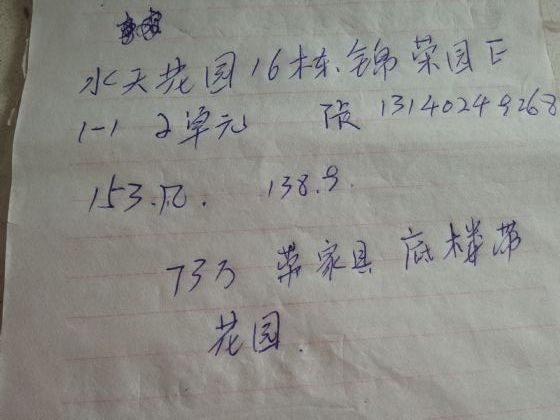 水天花园16栋、锦荣园E
1-1 2单元 张 13140249268
153.几. 138.9.
73万 带家具 底楼带
花园.